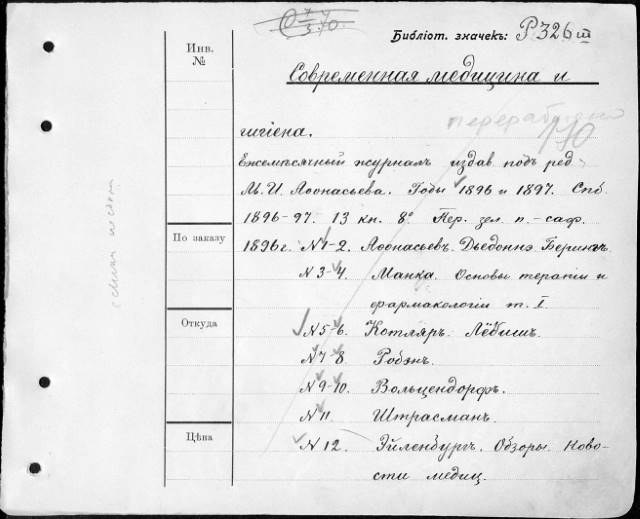 Библіот. значекъ: Р326 III
Инв.
№
Современная медицина и
переработано
гигіена.
Ежемѣсячный журналъ издав подъ ред.
М. И. Аѳонасьева. Годы 1896 и 1897. Спб.
1896-97. 13 кн. 8° Пер. зел. п.-саф.
По заказу
1896 г. №1-2. Аѳонасьевъ. Дьедоннэ. Берингъ.
№3-4. Манка. Основы терапіи и
фармакологіи т. I.
Откуда
№5-6. Котляръ. Лёбишъ.
№7-8. Робэнъ.
№9-10. Вольцендорфъ.
№11. Штрасманъ.
Цѣна
№12. Эйленбургъ. Обзоры. Ново-
сти медиц.